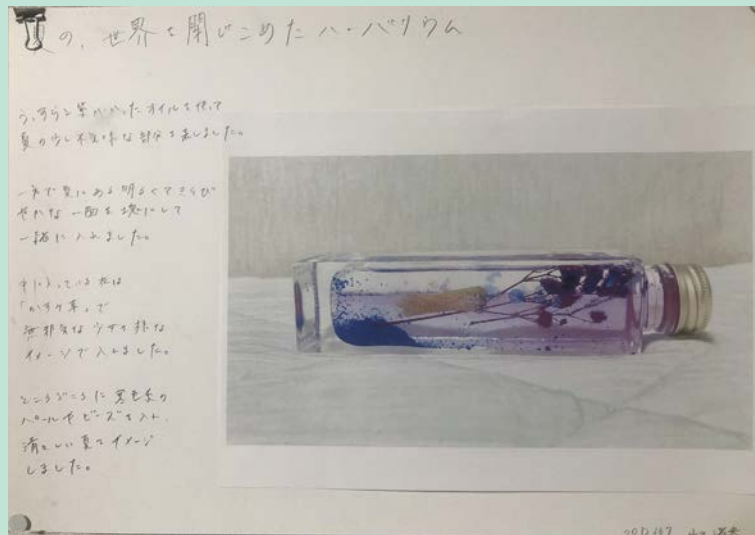 の、世界を閉じこめたハーバリウム
うっすらと紫がかったオイルを使って
夏の少し不気味な部分を表しました。
一方で夏にある明るくてきらび
やかな一面を
一緒に入れました。
中に入っている花は
「かすみ草」で
無邪気な少女の様な
イメージで入れました。
ところどころに寒色系の
パールやビーズを入れ、
清々しい夏をイメージ
しました。